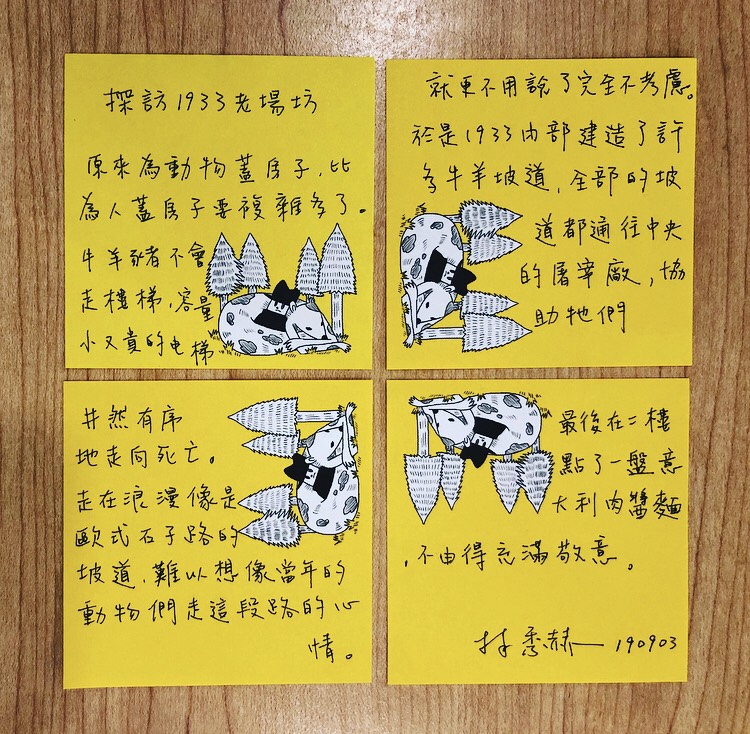 探訪1933老場坊
原來為動物蓋房子,比
為人蓋房子要複雜多了。
牛羊豬不會
走樓梯,容量
小又貴的电梯
就更不用說了完全不考慮。
於是1933內部建造了許
多牛羊坡道,全部的坡
道都通往中央
的屠宰廠,協
助牠們
井然有序
地走向死亡。
走在浪漫像是
歐式石子路的
坡道,難以想像當年的
動物們走這段路的心
情。
最後在二樓
點了一盤意
大利肉醬麵
,不由得充滿敬意。
林秀赫 190903